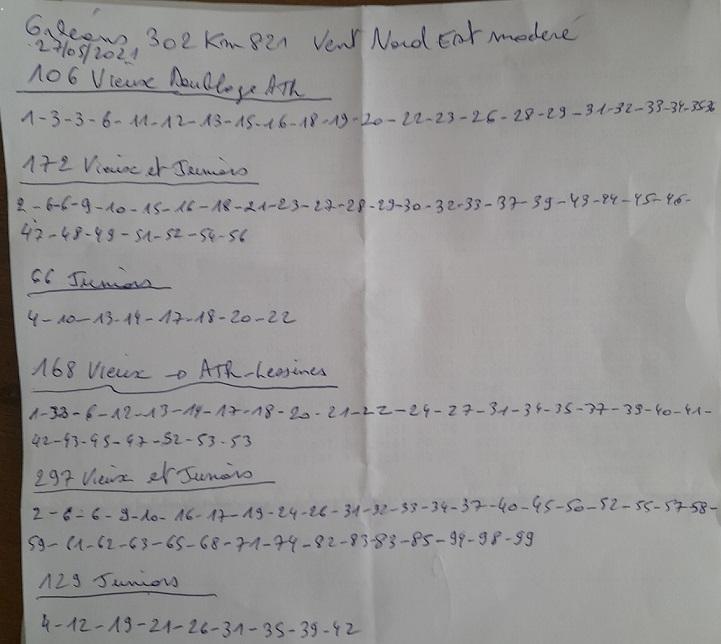 Orléans 302 Km 821 Vent Nord Est modéré
27/05/2021
106 Vieux Doublage Ath
1-3-3-6-11-12-13-15-16-18-19-20-22-23-26-28-29-31-32-33-34-35-36
172 Vieux et Juniors
2-6-6-9-10-15-16-18-21-23-27-28-29-30-32-33-37-39-43-44-45-46-
47-48-49-51-52-54-56
66 Juniors
4-10-13-14-17-18-20-22
168 Vieux → ATH-Lessines
1-33-6-12-13-14-17-18-20-21-22-24-27-31-34-35-37-39-40-41-
42-43-45-47-52-53-53
297 Vieux et Juniors
2-6-6-9-10-16-17-19-24-26-31-32-33-34-37-40-45-50-52-55-57-58-
59-61-62-63-65-68-71-74-82-83-83-85-94-98-99
129 Juniors
4-12-19-21-26-31-35-39-42